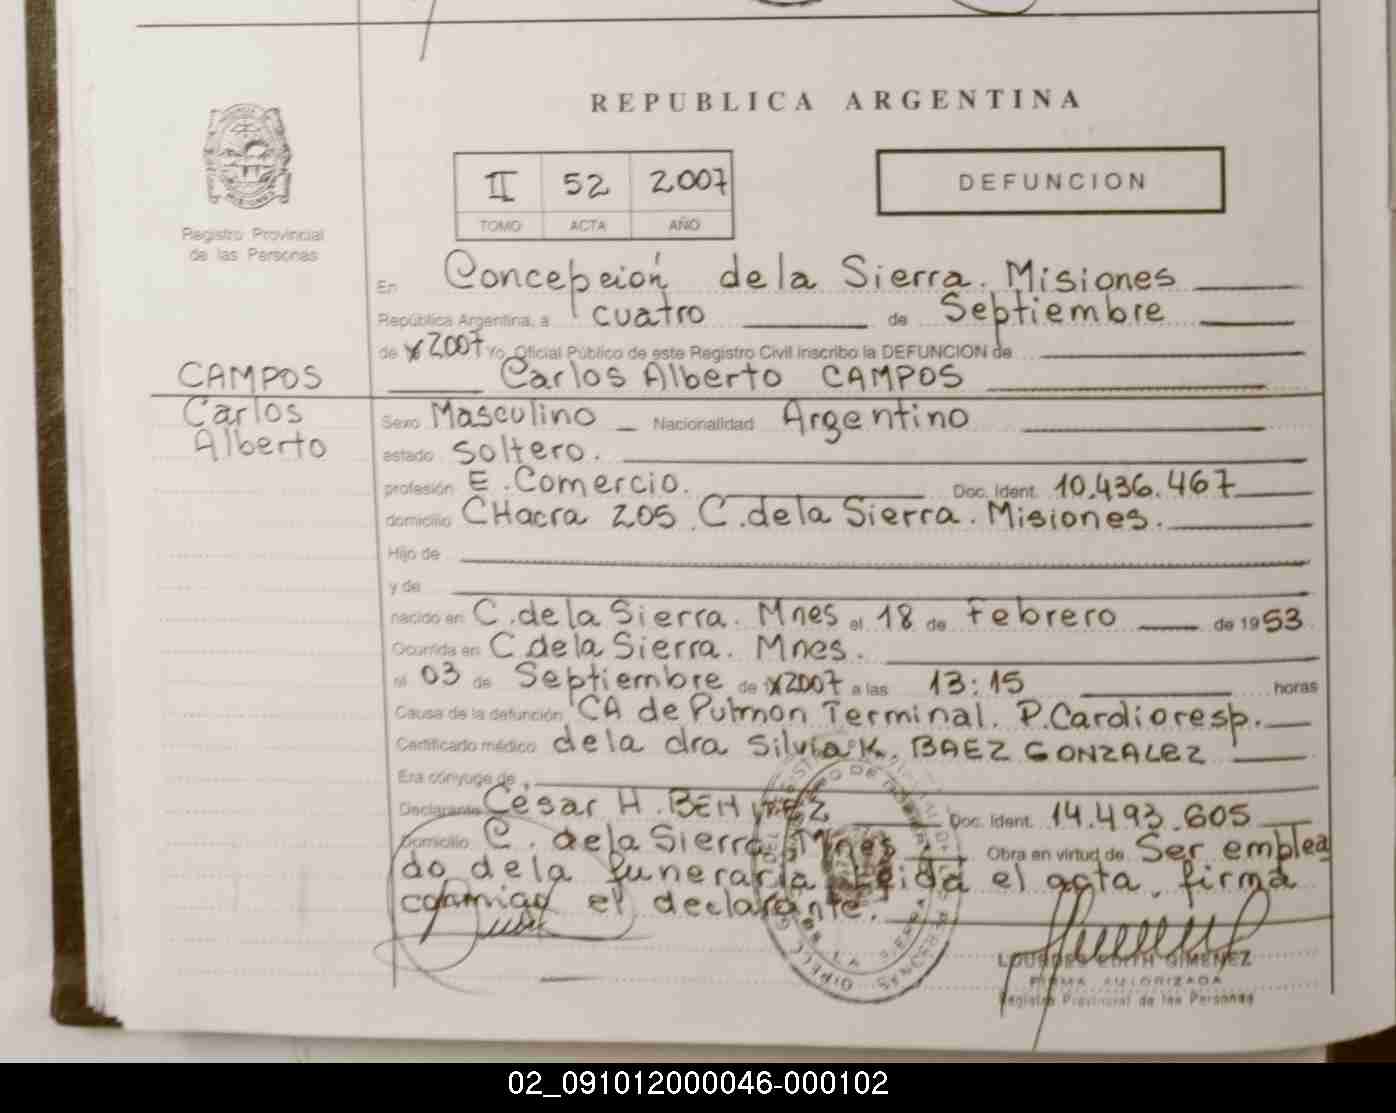 REPUBLICA ARGENTINA
II 52 2007
TOMO ACTA AÑO
DEFUNCION
Registro Provincial
de las Personas
En Concepción de la Sierra. Misiones
República Argentina, a cuatro de Septiembre
de 2007 Yo, Oficial Público de este Registro Civil inscribo la DEFUNCION de
Carlos Alberto CAMPOS
CAMPOS
Carlos
Alberto
Sexo Masculino Nacionalidad Argentino
estado Soltero.
profesión E. Comercio. Doc. Ident. 10.436.467
domicilio CHacra 205. C. de la Sierra. Misiones.
Hijo de
y de
nacido en C. de la Sierra. Mnes el 18 de Febrero de 1953
Ocurrida en C de la Sierra. Mnes.
el 03 de Septiembre de 2007 a las 13:15 horas
Causa de la defunción CA de Pulmon Terminal. P. Cardioresp.
Certificado médico de la dra Silvia K. BAEZ GONZALEZ
Era cónyuge de
Declarante César H. BENITEZ Doc. Ident. 14.493.605
Domicilio C. de la Sierra Mnes Obra en virtud de Ser emplea
do de la funeraria Leida el acta, firma
conmigo el declarante.
LOURDES EDITH GIMENEZ
FIRMA AUTORIZADA
Registro Provincial de las Personas
02_091012000046-000102